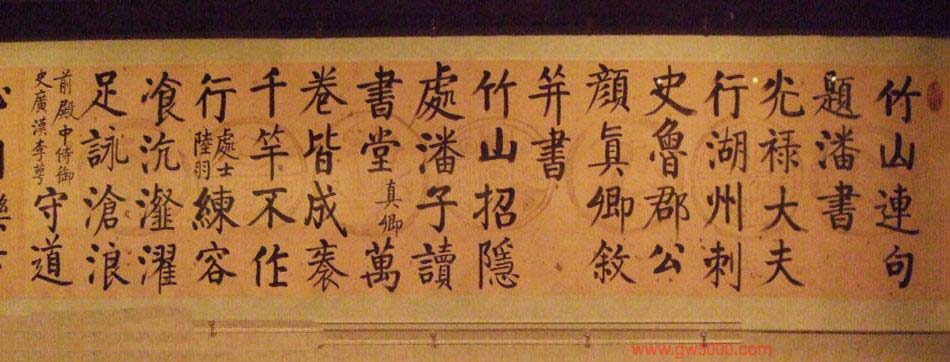 竹山連句
題潘書
光禄大夫
行湖州刺
史魯郡公
顔真卿敘
并書
竹山招隱
處潘子讀
書堂真卿萬
卷皆成袠
千竿不作
行處士陸羽練容
飡沆瀣濯
足詠滄浪
前殿中侍御史廣漢李萼守道
www.gw5000.com